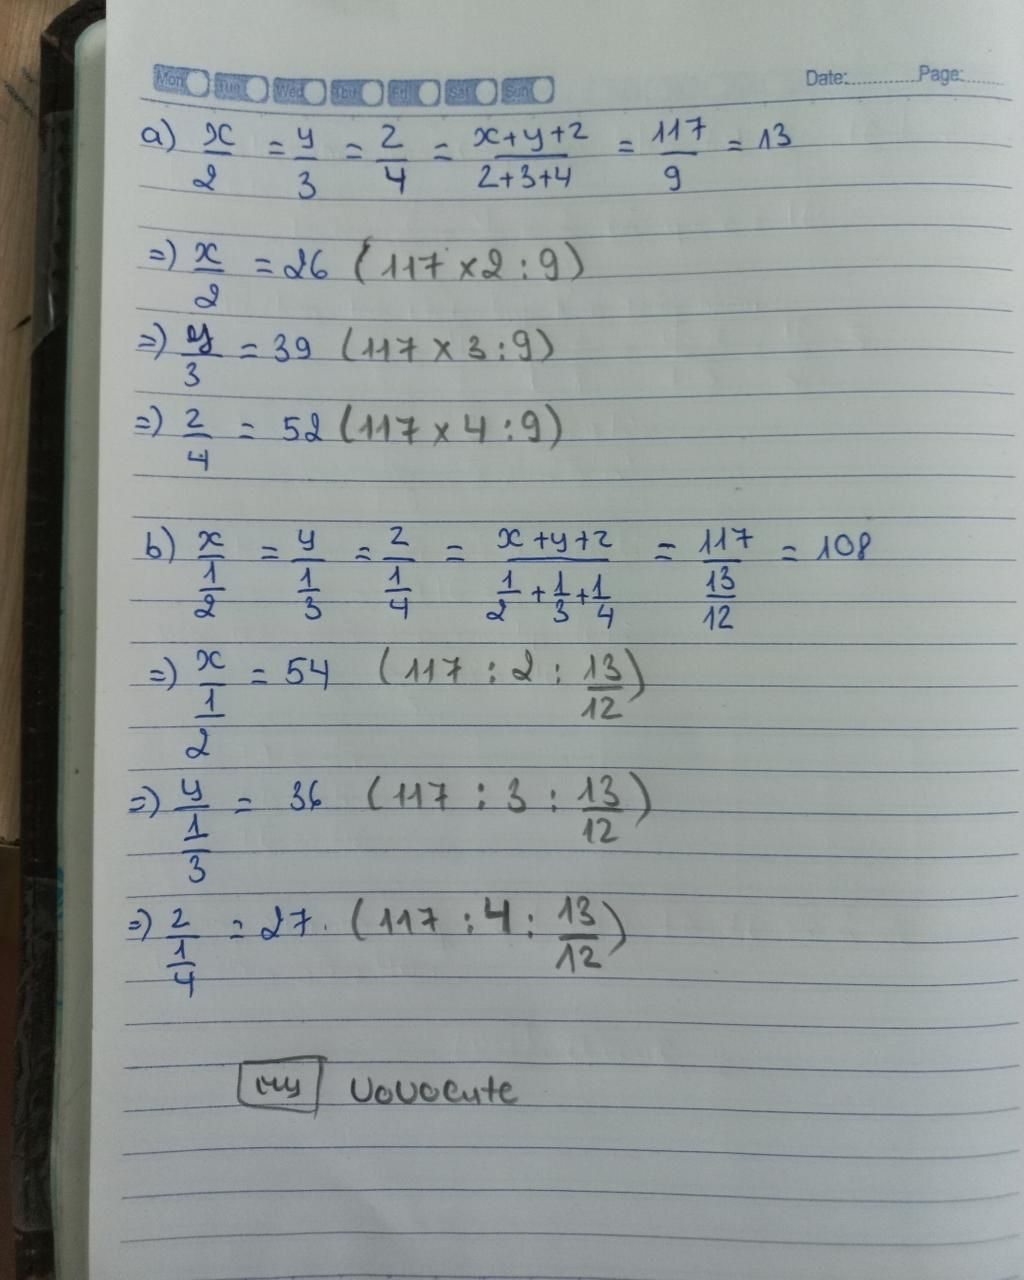 Mon Tue Wed Thu Fri Sat Sun Date:............Page:.......
a) x/2 = y/3 = z/4 = (x+y+z)/(2+3+4) = 117/9 = 13
=) x/2 = 26 (117 x 2 : 9)
=) y/3 = 39 (117 x 3 : 9)
=) z/4 = 52 (117 x 4 : 9)
b) x/(1/2) = y/(1/3) = z/(1/4) = (x+y+z)/(1/2+1/3+1/4) = 117/(13/12) = 108
=) x/(1/2) = 54 (117 : 2 : 13/12)
=) y/(1/3) = 36 (117 : 3 : 13/12)
=) z/(1/4) = 27. (117 : 4 : 13/12)
My vovocute